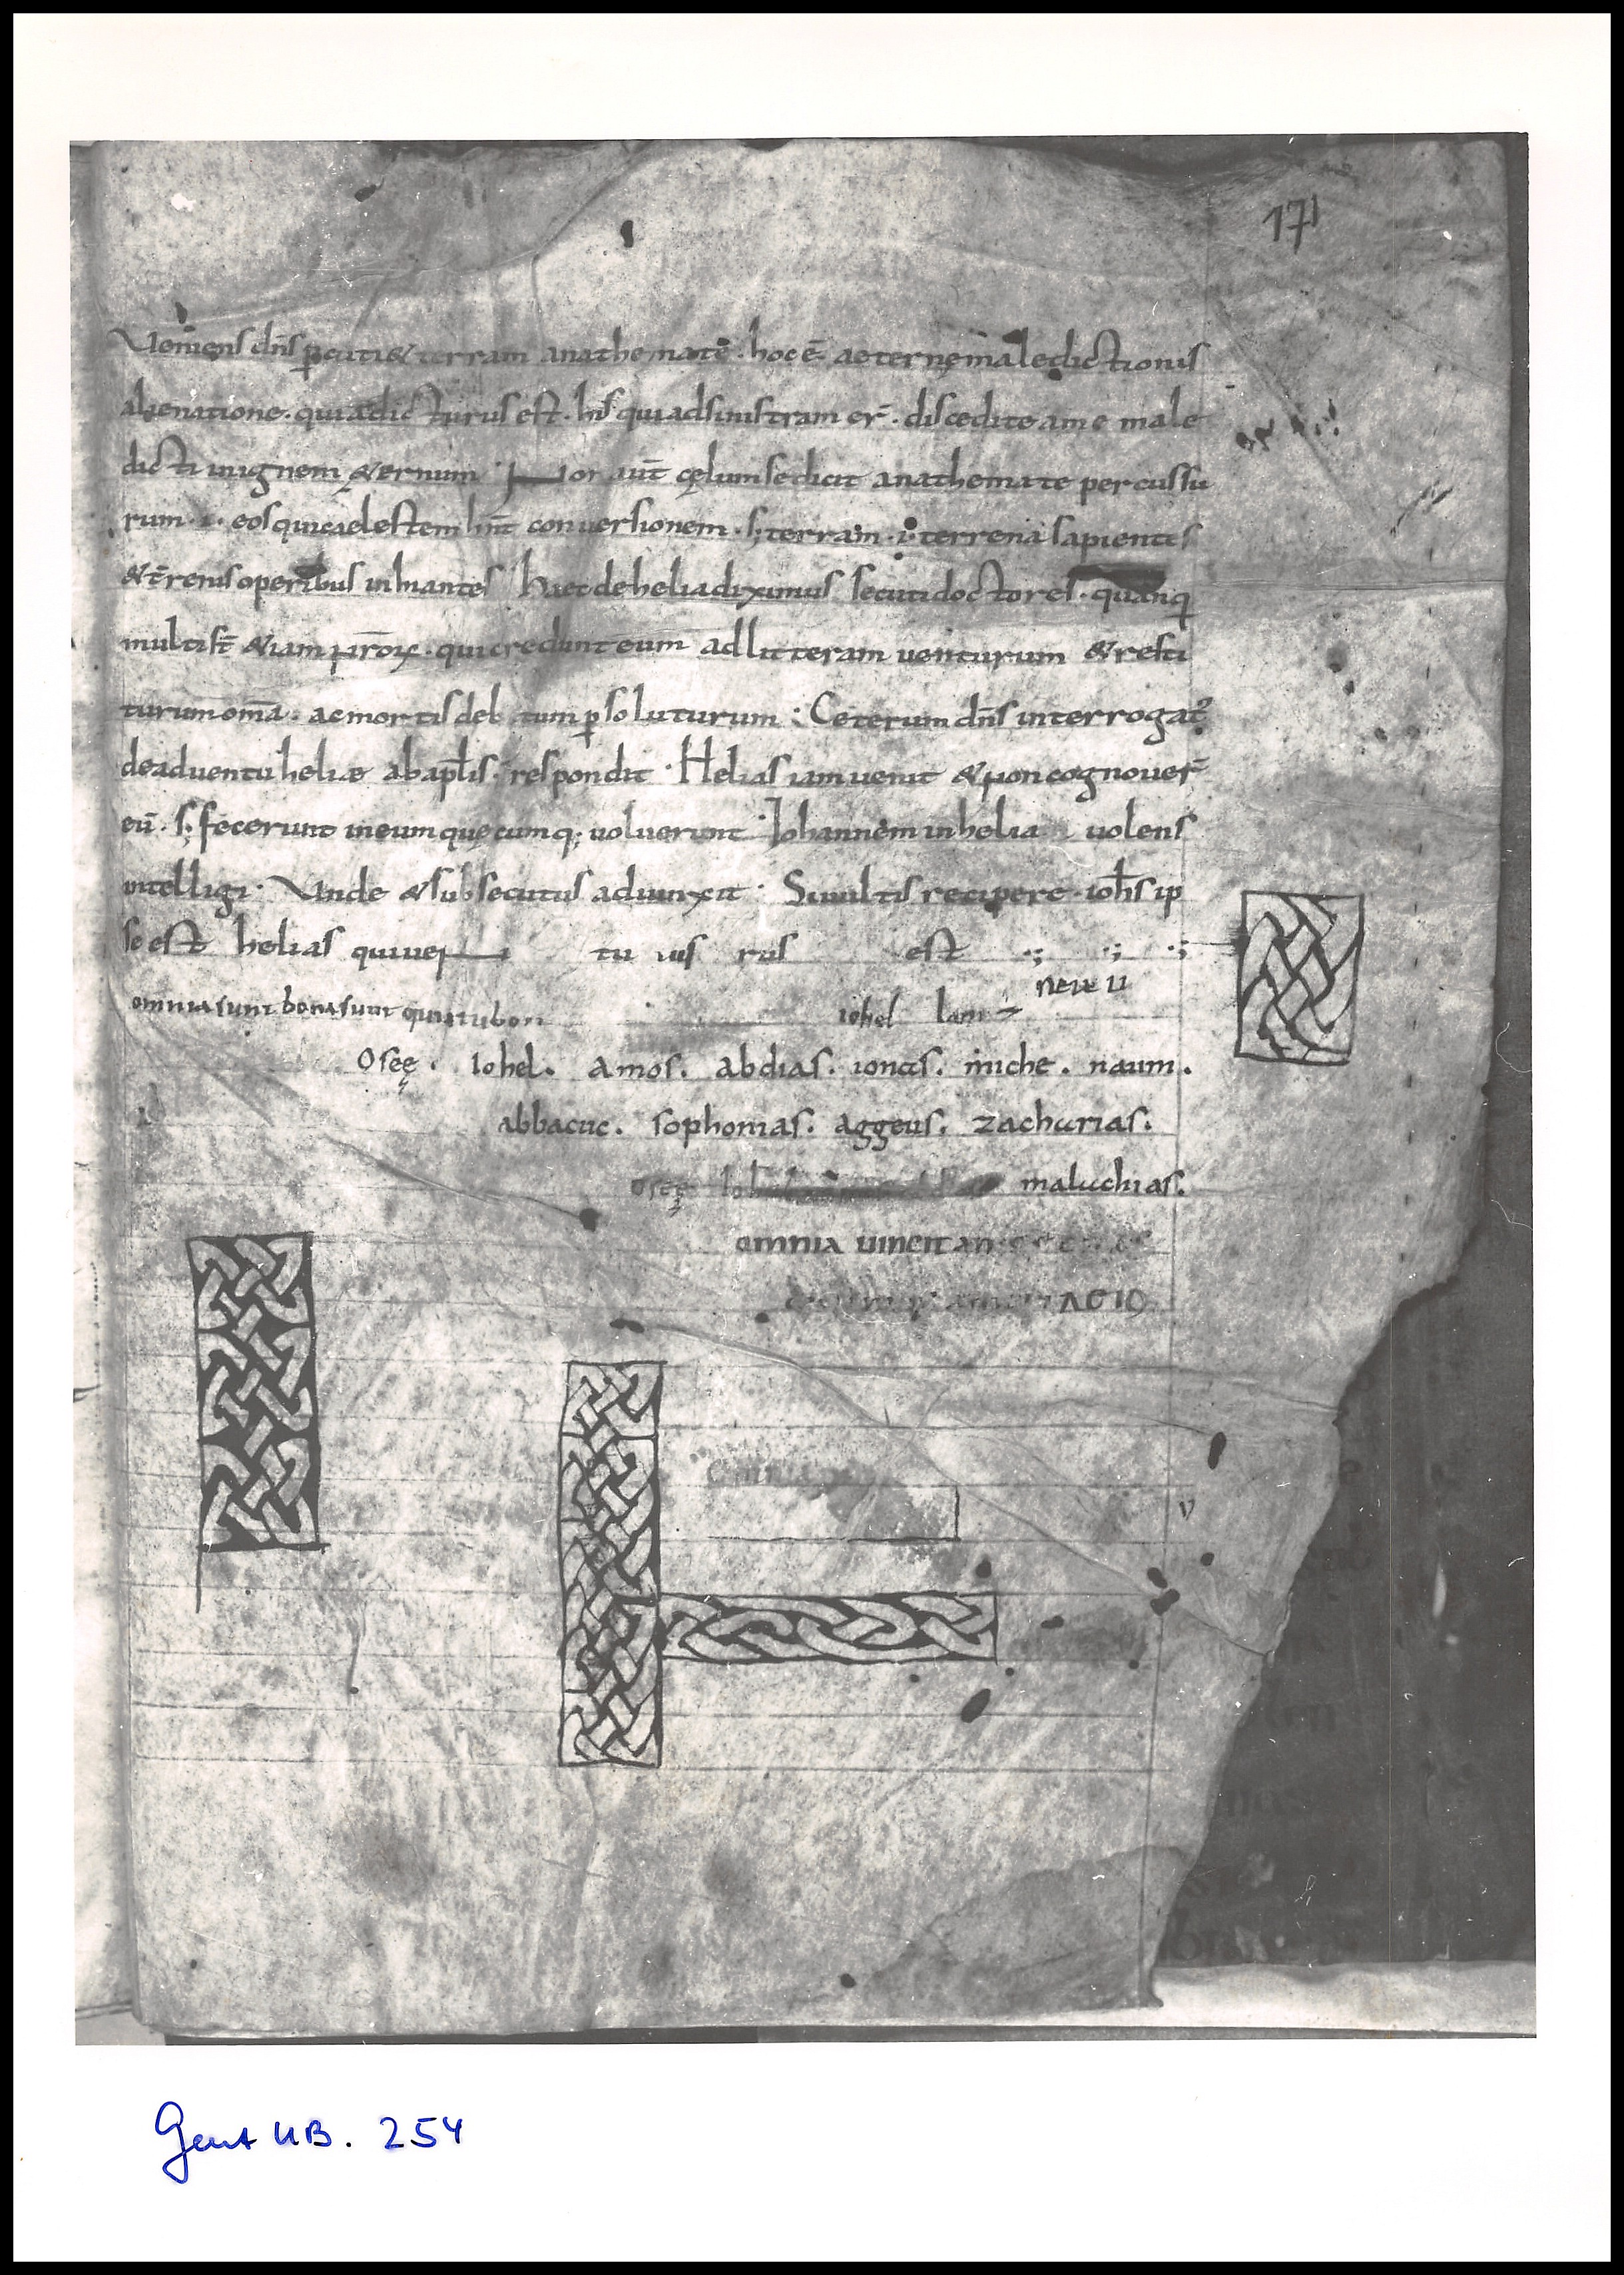 171
Veniens dn̄s ꝑcuti& terram anathemate · hoc ē aeternę maledictionis
alienatione · quia dicturus est · his qui ad sinistram er̄ · discedite a me male
dicti in ignem &ernum · Non aut̄ cęlum se dicit anathemate percussu
rum · i · eos qui caelestem hn̄t conversionem · s; terram · i · terrena sapientes
& t̄renis operibus inhiantes haec de helia diximus secuti doctores · quanq
multi st̄ &iam nr̄oꝝ · qui credunt eum ad litteram venturum & resti
turum om̄a · ac mortis deb tum ꝑsoluturum : Ceterum dn̄s interrogat᷒
de adventu heliae ab apl̄is · respondit · Helias iam venit & non cognover̄
eū · s; fecerunt in eum quęcumq; voluerunt · Johannem in helia volens
intelligi · Unde & subsecutus adiunxit · Si vultis recipere · ioh̄s ip
se est helias qui ven tu rus est ·; ·; ·;
nere u
omnia sunt bona sunt iohel lam
Oseę · Iohel · amos · abdias · ionas · miche · naum ·
abbacuc · sophonias · aggeus · zacharias ·
oseę maluchias ·
omnia vincit
Gent UB. 254